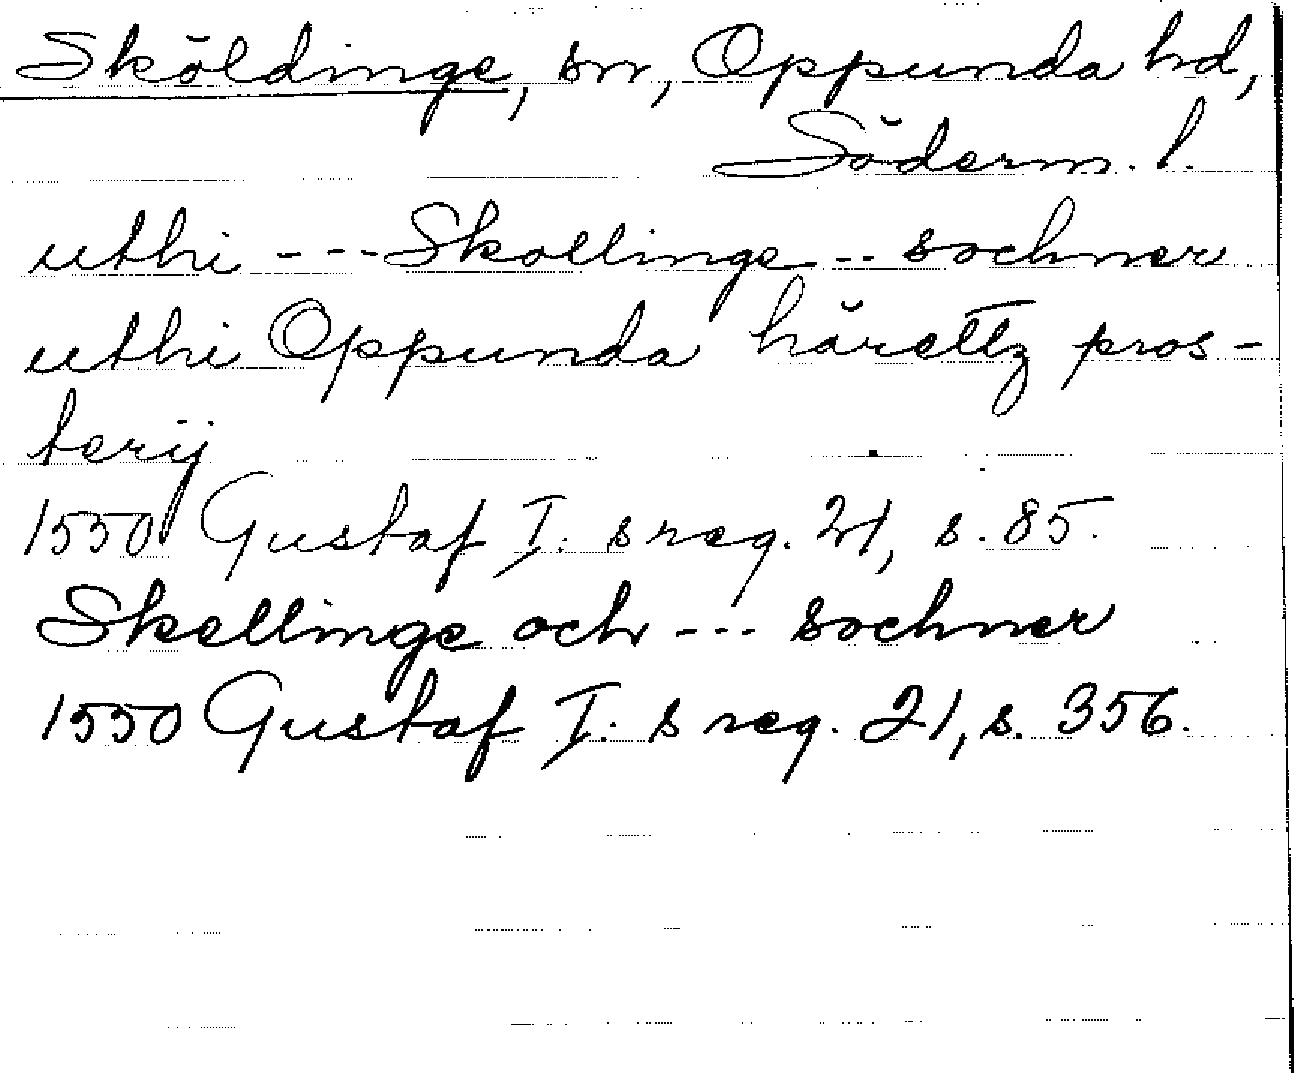 Sköldinge, sn, Oppunda hd,
Söderm. l.
uthi --- Skollinge -- sochner
uthi Oppunda härettz pros-
terij
1550 Gustaf I:s reg. 21, s. 85.
Skellinge och --- sochner
1550 Gustaf I:s reg. 21, s. 356.